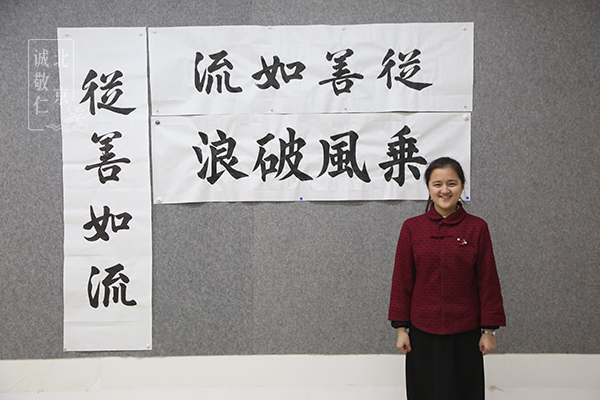 從善如流
乘風破浪
從善如流
北京
诚敬仁